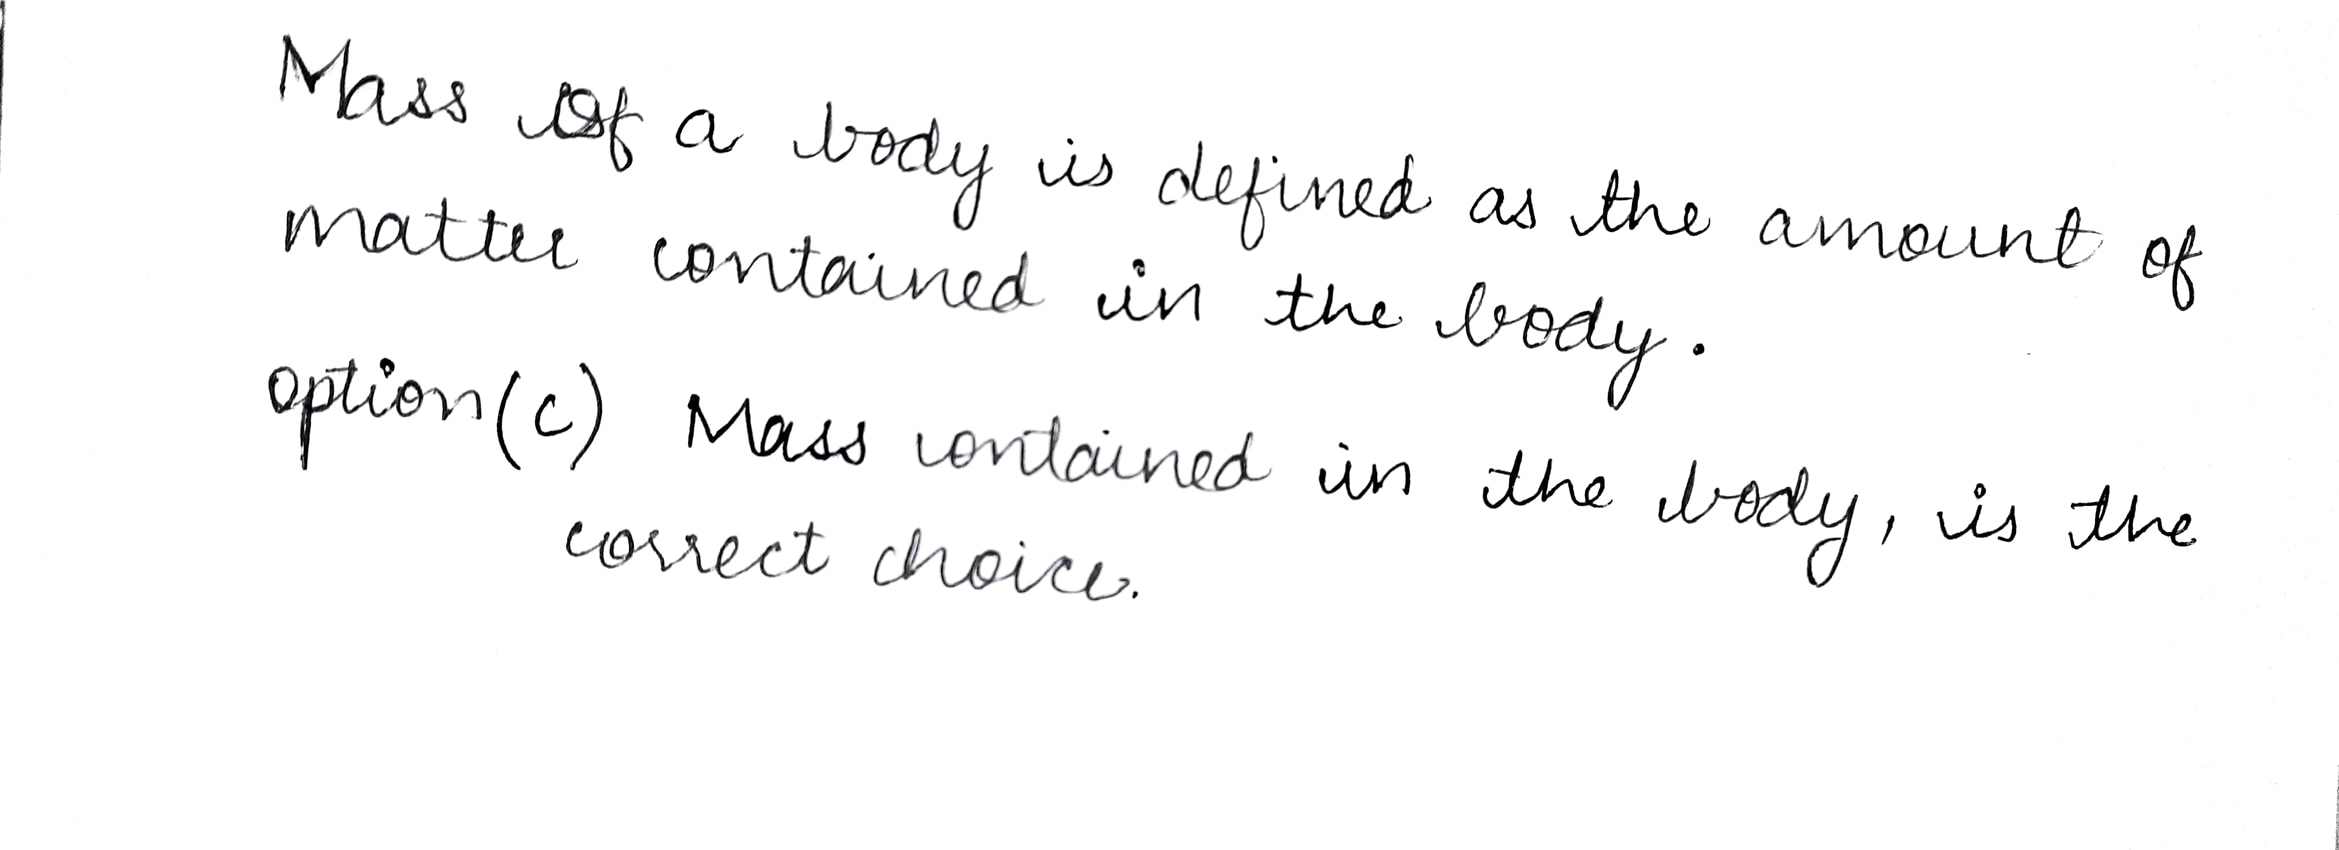 Mass of a body is defined as the amount of
matter contained in the body.
option (c) Mass contained in the body, is the
correct choice.